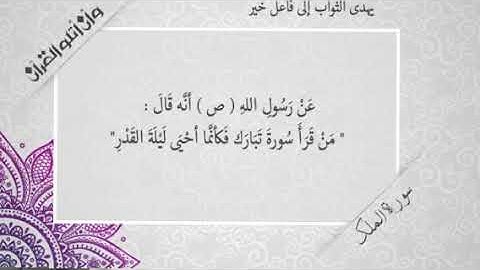 يهدى الثواب إلى فاعل خير
وأن أتلو القرآن
عَنْ رَسُولِ اللهِ ( ص ) أَنَّه قَالَ :
" مَنْ قَرَأَ سُورةَ تَبَارَك فَكَأنَّما أحْيَى لَيْلَةَ القَدْرِ"
سورة الملك